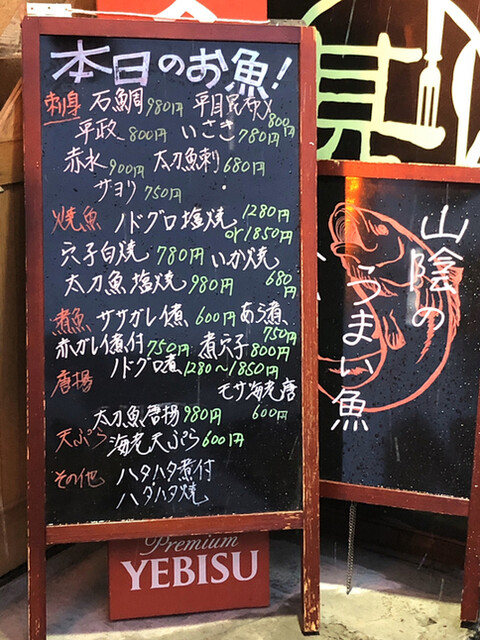 本日のお魚!
刺身 石鯛 980円 平目昆布〆 800円
平政 800円 いさき 780円
赤水 900円 太刀魚刺 680円
サヨリ 750円
焼魚 ノドグロ塩焼 1280円 or 1850円
穴子白焼 780円 いか焼 680円
太刀魚塩焼 980円
煮魚 ササガレイ煮 600円 あら煮 750円
赤ガレイ煮付 750円 煮穴子 800円
ノドグロ煮 1280~1850円
唐揚 モサ海老唐 600円
太刀魚唐揚 980円
天ぷら 海老天ぷら 600円
その他 ハタハタ煮付
ハタハタ焼
山陰の
うまい魚
Premium
YEBISU